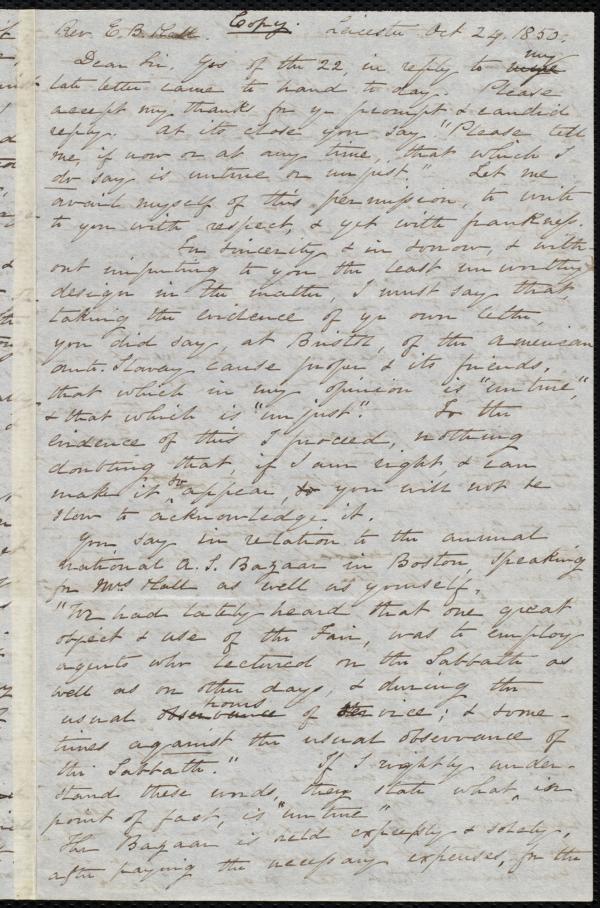 Rev. E B. Hall. Copy. Leicester Oct 24, 1850.
Dear Sir. Yrs of the 22, in reply to my
late letter came to hand to day. Please
accept my thanks for yr prompt & candid
reply. At its close you say "Please tell
me, if now or at any time, that which I
do say is untrue or unjust." Let me
avail myself of this permission, to write
to you with respect, & yet with frankness.
In sincerity & in sorrow, & with-
out imputing to you the least unworthy
design in the matter, I must say that,
taking the evidence of yr own letter,
you did say, at Bristol, of the American
anti-Slavery cause proper & its friends,
that which in my opinion is "untrue,"
& that which is "unjust." To the
evidence of this I proceed, nothing
doubting that, if I am right & can
make it so appear, you will not be
slow to acknowledge it.
You say in relation to the annual
national A. S. Bazaar in Boston, speaking
for Mrs Hall as well as yourself,
"We had lately heard that one great
object & use of the Fair, was to employ
agents who lectured on the Sabbath as
well as on other days, & during the
usual hours of service; & some-
times against the usual observance of
the Sabbath." If I rightly under-
stand these words, they state what in
point of fact, is "untrue"
The Bazaar is held expressly & solely,
after paying the necessary expenses, for the